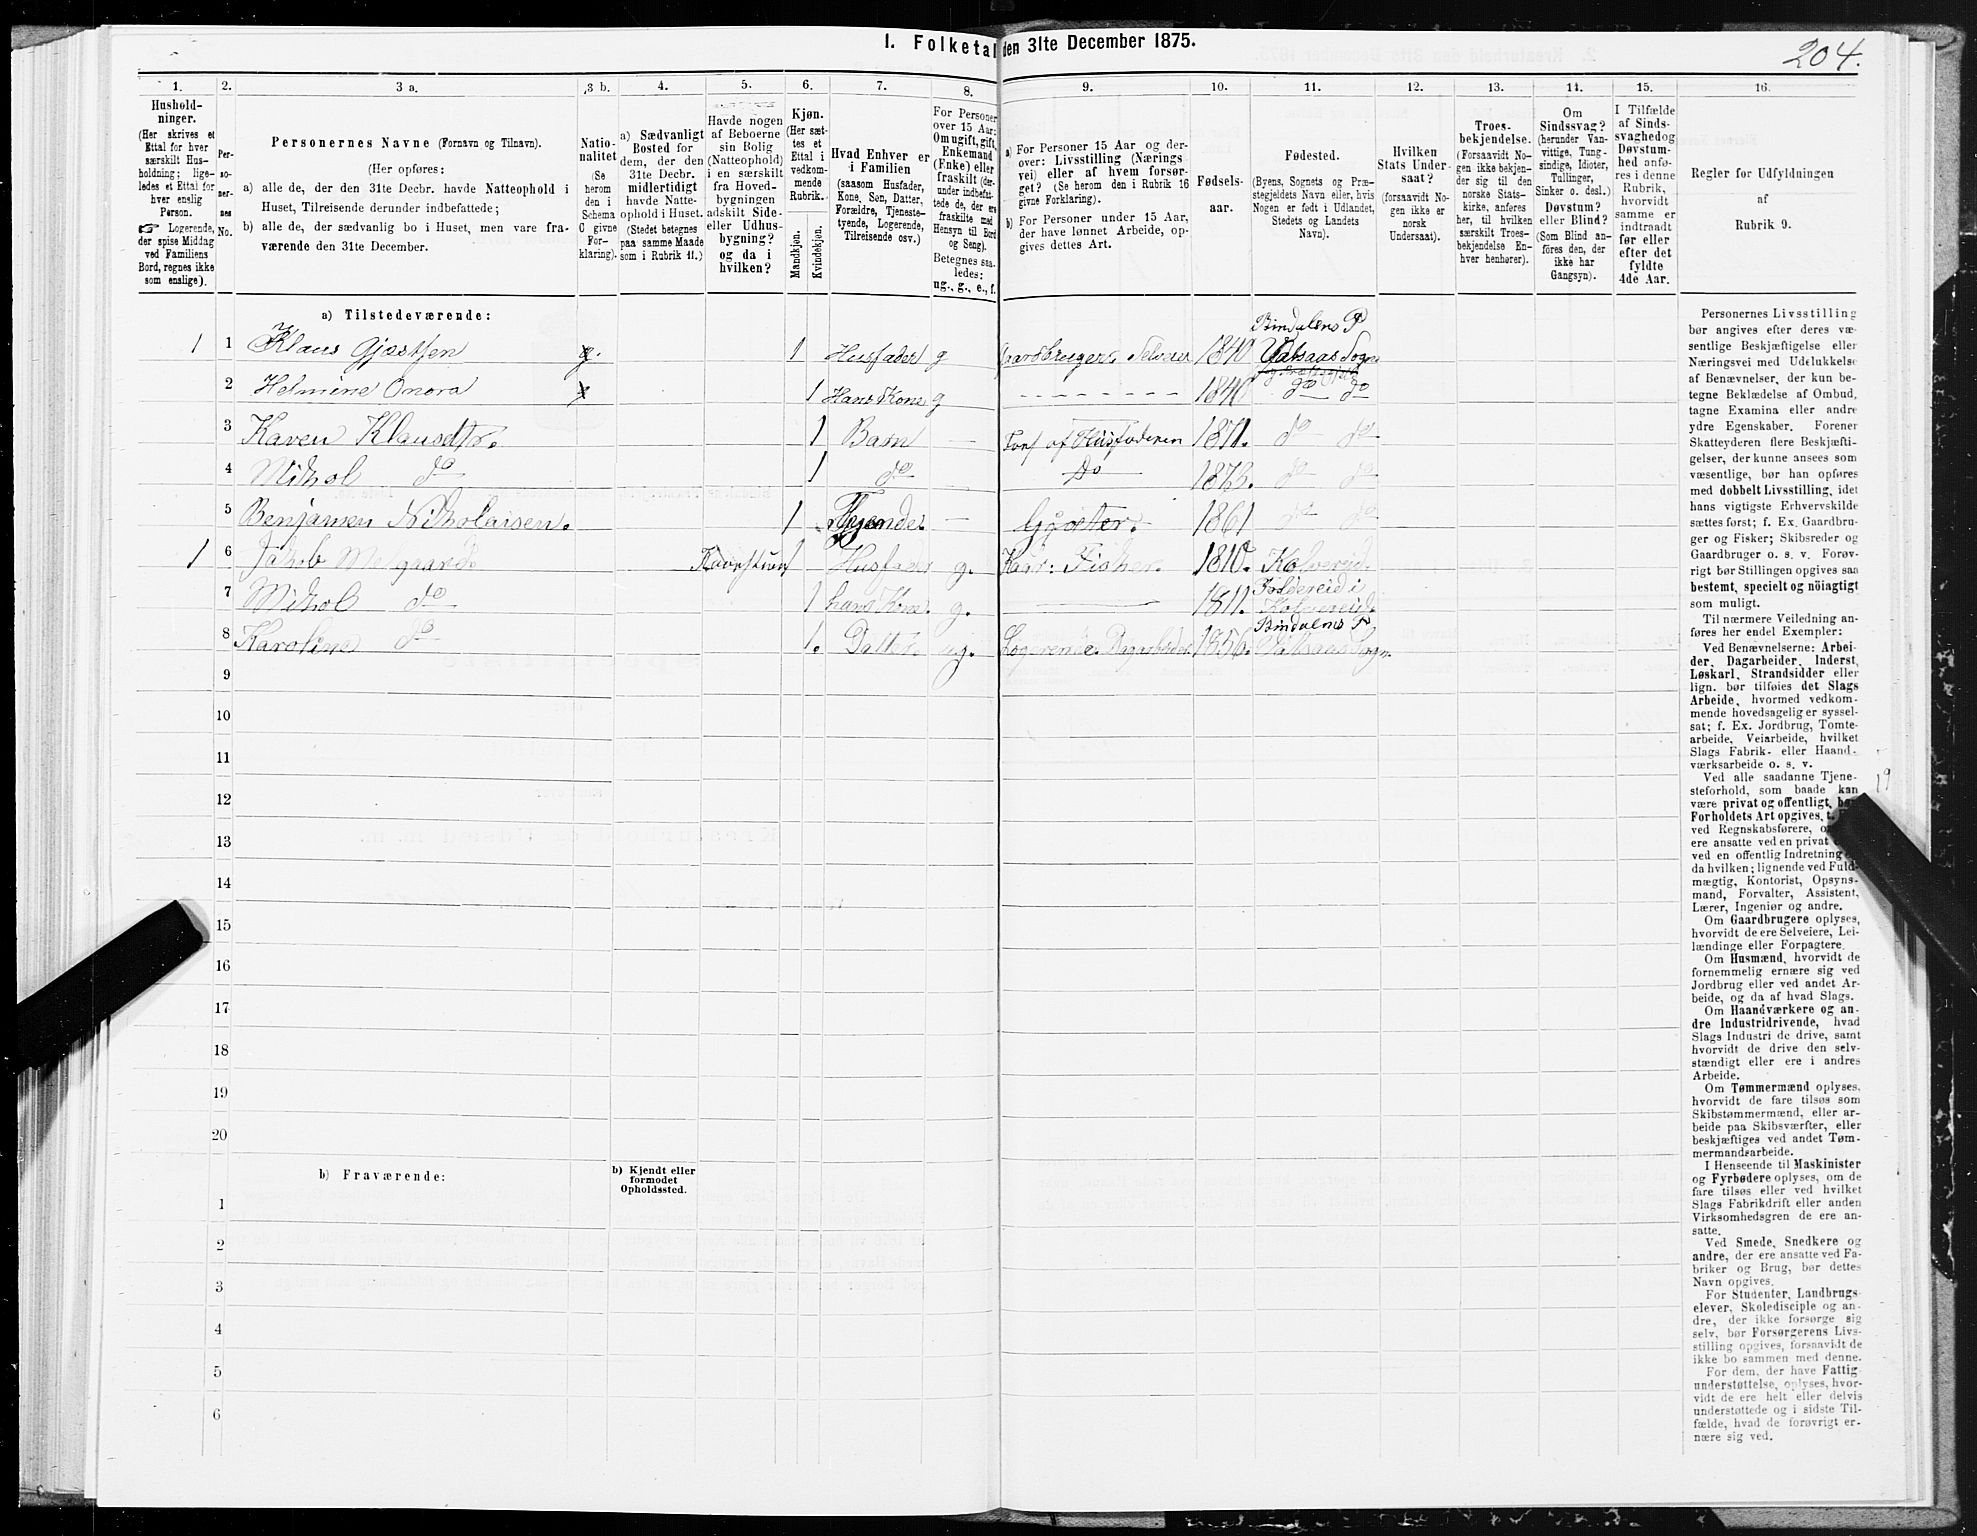 1. Folketal den 31te December 1875.
204.
1. 2. 3 a. 3 b. 4. 5. 6. 7. 8. 9. 10. 11. 12. 13. 14. 15. 16.
Hushold-
ninger.
(Her skrives et
Ettal for hver
særskilt Hus-
holdning; lige-
ledes et Ettal for
hver enslig
Person.
☞ Logerende,
der spise Middag
ved Familiens
Bord, regnes ikke
som enslige).
Per-
so-
ner-
nes
No.
Personernes Navne (Fornavn og Tilnavn).
(Her opføres:
a) alle de, der den 31te Decbr. havde Natteophold i
Huset, Tilreisende derunder indbefattede;
b) alle de, der sædvanlig bo i Huset, men vare fra-
værende den 31te December.
Natio-
nalitet
(Se
herom
den i
Schema
C givne
For-
klaring).
a) Sædvanligt
Bosted for
dem, der den
31te Decbr.
midlertidigt
havde Natte-
ophold i Huset.
(Stedet betegnes
paa samme Maade
som i Rubrik 11.)
Havde nogen
af Beboerne
sin Bolig
(Natteophold)
i en særskilt
fra Hoved-
bygningen
adskilt Side-
eller Udhus-
bygning?
og da i
hvilken?
Kjøn.
(Her sæt-
tes et
Ettal i
vedkom-
mende
Rubrik.
Mandkjøn.
Kvindekjøn.
Hvad Enhver er
i Familien
(saasom Husfader,
Kone, Søn, Datter,
Forældre, Tjeneste-
tyende, Logerende,
Tilreisende osv.)
For Personer
over 15 Aar:
Om ugift, gift,
Enkemand
(Enke) eller
fraskilt (der-
under indbefat-
tede de, der ere
fraskilte med
Hensyn til Bord
og Seng).
Betegnes saa-
ledes:
ug., g., e., f.
a) For Personer 15 Aar og der-
over: Livsstilling (Nærings-
vei) eller af hvem forsør-
get? (Se herom den i Rubrik 16
givne Forklaring).
b) For Personer under 15 Aar,
der have lønnet Arbeide, op-
gives dettes Art.
Fødsels-
aar.
Fødested.
(Byens, Sognets og Præ-
stegjeldets Navn eller, hvis
Nogen er født i Udlandet,
Stedets og Landets
Navn).
Hvilken
Stats Under-
saat?
(forsaavidt No-
gen ikke er
norsk
Undersaat).
Troes-
bekjendelse.
(Forsaavidt No-
gen ikke bekjen-
der sig til den
norske Stats-
kirke, anføres
her, til hvilken
særskilt Troes-
bekjendelse En-
hver henhører).
Om
Sindssvag?
(herunder Van-
vittige, Tung-
sindige, Idioter,
Tullinger,
Sinker o. desl.)
Døvstum?
eller Blind?
(Som Blind an-
föres den, der
ikke har
Gangsyn).
I Tilfælde
af Sinds-
svaghed og
Døvstum-
hed anfø-
res i denne
Rubrik,
hvorvidt
samme er
indtraadt
før eller
efter det
fyldte
4de Aar.
Regler for Udfyldningen
af
Rubrik 9.
a) Tilstedeværende:
Bindalens P
1 1 Klaus Gjæstsen 1 Husfader g Gaardbruger Selveier 1840 Vatsaas Sogn
2 Helmine Onora 1 Hans Kone g 1840 do do
3 Karen Klausdtr. 1 Barn Fors af Husfaderen 1871. do do
4 Mikol do 1 do Do 1873. do do
5 Benjamen Nikolaisen. 1 Tyende. Gjæter. 1861 do do
1 6 Jakob 1 Husfader g. Kaar: Fisker. 1810. Kolvereid.
7 Mikol do 1 hans Kone. g. 1811. Foldereid i
Kolvereid.
Bindalens P.
8 Karoline do 1. Datter. ug. Logerende. Dagarbeider 1856. Vatsaas Sogn.
9
10
11
12
13
14
15
16
17
18
19
20
b) Fraværende:
b) Kjendt eller
formodet
Opholdssted.
1
2
3
4
5
6
Personernes Livsstilling
bør angives efter deres væ-
sentlige Beskjæftigelse eller
Næringsvei med Udelukkelse
af Benævnelser, der kun be-
tegne Beklædelse af Ombud,
tagne Examina eller andre
ydre Egenskaber. Forener
Skatteyderen flere Beskjæfti-
gelser, der kunne ansees som
væsentlige, bør han opføres
med dobbelt Livsstilling, idet
hans vigtigste Erhvervskilde
sættes først; f. Ex. Gaardbru-
ger og Fisker; Skibsreder og
Gaardbruger o. s. v. Forøv-
rigt bør Stillingen opgives saa
bestemt, specielt og nöiagtigt
som muligt.
Til nærmere Veiledning an-
føres her endel Exempler:
Ved Benævnelserne: Arbei-
der, Dagarbeider, Inderst,
Løskarl, Strandsidder eller
lign. bør tilføies det Slags
Arbeide, hvormed vedkom-
mende hovedsagelig er syssel-
sat; f. Ex. Jordbrug, Tomte-
arbeide, Veiarbeide, hvilket
Slags Fabrik- eller Haand-
værksarbeide o. s. v.
Ved alle saadanne Tjene-
steforhold, som baade kan
være privat og offentligt, bør
Forholdets Art opgives,
ved Regnskabsførere,
ere ansatte ved en privat
ved en offentlig Indretning
da hvilken; lignende ved Fuld-
mægtig, Kontorist, Opsyns-
mand, Forvalter, Assistent,
Lærer, Ingeniør og andre.
Om Gaardbrugere oplyses,
hvorvidt de ere Selveiere, Lei-
lændinge eller Forpagtere.
Om Husmænd, hvorvidt de
fornemmelig ernære sig ved
Jordbrug eller ved andet Ar-
beide, og da af hvad Slags.
Om Haandværkere og an-
dre Industridrivende, hvad
Slags Industri de drive, samt
hvorvidt de drive den selv-
stændigt eller ere i andres
Arbeide.
Om Tømmermænd oplyses,
hvorvidt de fare tilsøs som
Skibstømmermænd, eller ar-
beide paa Skibsværfter, eller
beskjæftiges ved andet Tøm-
mermandsarbeide.
I Henseende til Maskinister
og Fyrbødere oplyses, om de
fare tilsøs eller ved hvilket
Slags Fabrikdrift eller anden
Virksomhedsgren de ere an-
satte.
Ved Smede, Snedkere og
andre, der ere ansatte ved Fa-
briker og Brug, bør dettes
Navn opgives.
For Studenter, Landbrugs-
elever, Skoledisciple og an-
dre, der ikke forsørge sig
selv, bør Forsørgerens Livs-
stilling opgives, forsaavidt de
ikke bo sammen med denne.
For dem, der have Fattig-
understøttelse, oplyses, hvor-
vidt de ere helt eller delvis
understøttede og i sidste Til-
fælde, hvad de forøvrigt er-
nære sig ved.